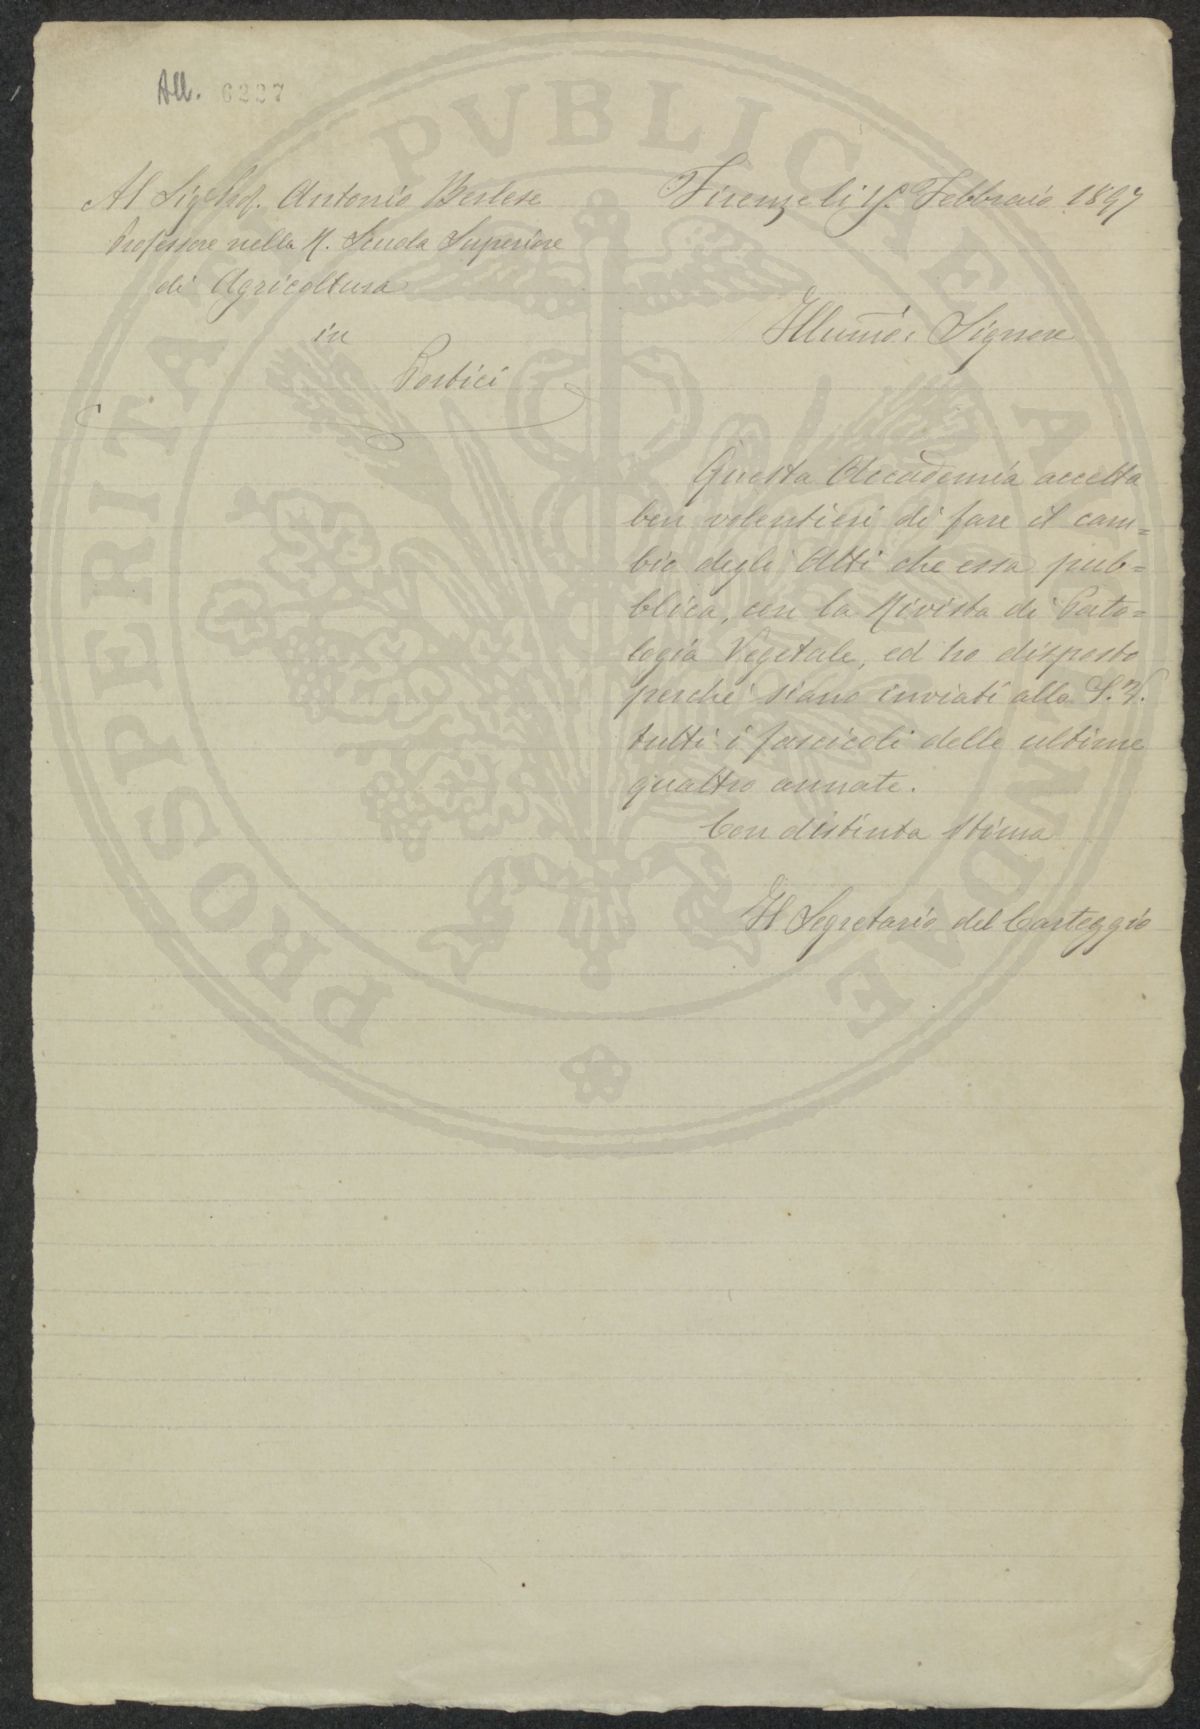 All. 6227
Al Sig. Prof. Antonio Berlese
Professore nella R. Scuola Superiore
di Agricoltura
in
Portici
Firenze li Febbraio 1897
Illumo. Signore
Questa Accademia accetta
ben volentieri di fare il cam=
bio degli Atti che essa pub=
blica, con la Rivista di Pato=
logia Vegetale, ed ho disposto
perchè siano inviati alla S. V.
tutti i fascicoli delle ultime
quattro annate.
Con distinta stima
Il Segretario del Carteggio
PROSPERITATI PVBLICAE AVGENDAE